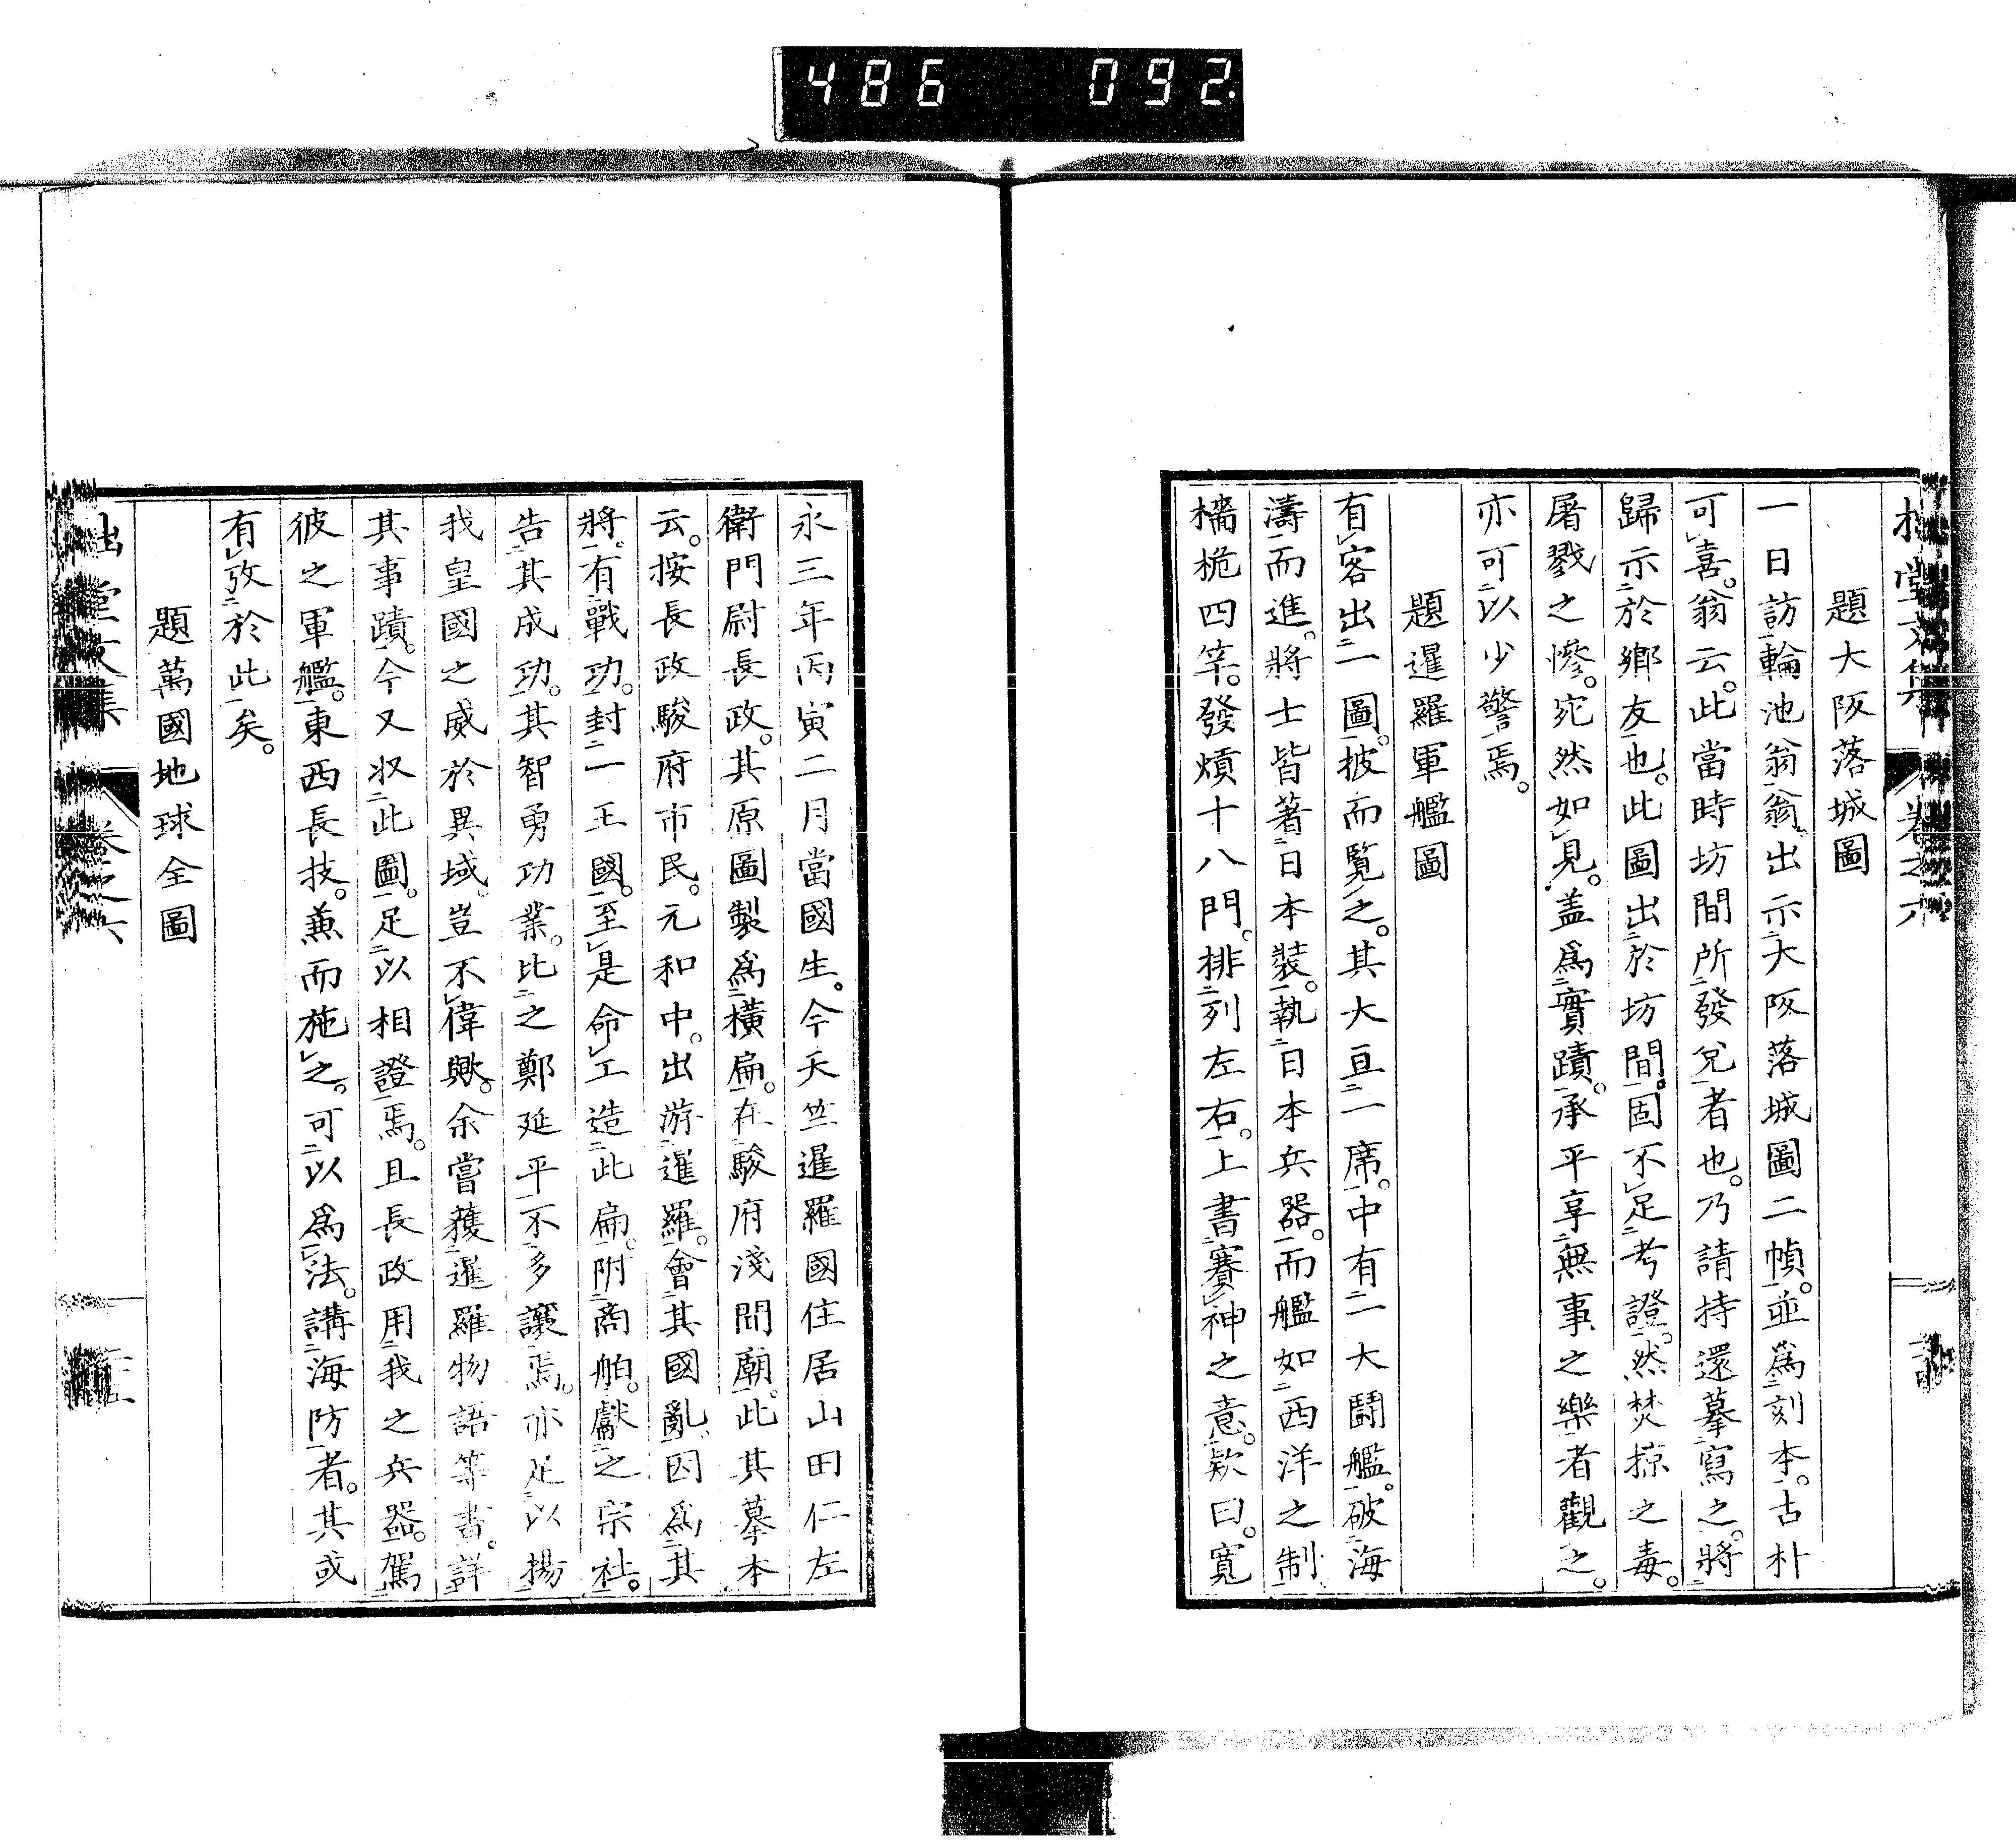 486 092
堂文集 卷之六
題大阪落城圖
一日訪輪池翁翁出示大阪落城圖二幀。並爲刻本。古朴
可喜。翁云。此當時坊間所發兌者也。乃請持還摹寫之。將
歸示於鄉友也。此圖出於坊間。固不足考證。然焚掠之毒。
屠戮之慘。宛然如見。盖爲實蹟。承平享無事之樂者觀之。
亦可以少警焉。
題暹羅軍艦圖
有客出一圖。披而覧之。其大亘一席。中有二大鬪艦。破海
濤而進。將士皆著日本裝。執日本兵器。而艦如西洋之制
檣桅四竿。發熕十八門。排列左右。上書賽神之意。款曰。寛
永三年丙寅二月當國生。今天竺暹羅國住居山田仁左
衛門尉長政。其原圖製爲橫扁。在駿府淺間廟。此其摹本
云。按長政駿府市民。元和中。出游暹羅。會其國亂。因爲其
將。有戰功。封一王國。至是命工造此扁。附商舶。獻之宗社。
告其成功。其智勇功業。比之鄭延平不多讓焉。亦足以揚
我皇國之威於異域。豈不偉歟。余嘗獲暹羅物語等書。詳
其事蹟。今又収此圖。足以相證焉。且長政用我之兵器。駕
彼之軍艦。東西長技。兼而施之。可以爲法。講海防者。其或
有攷於此矣。
題萬國地球全圖
堂文集 卷之六